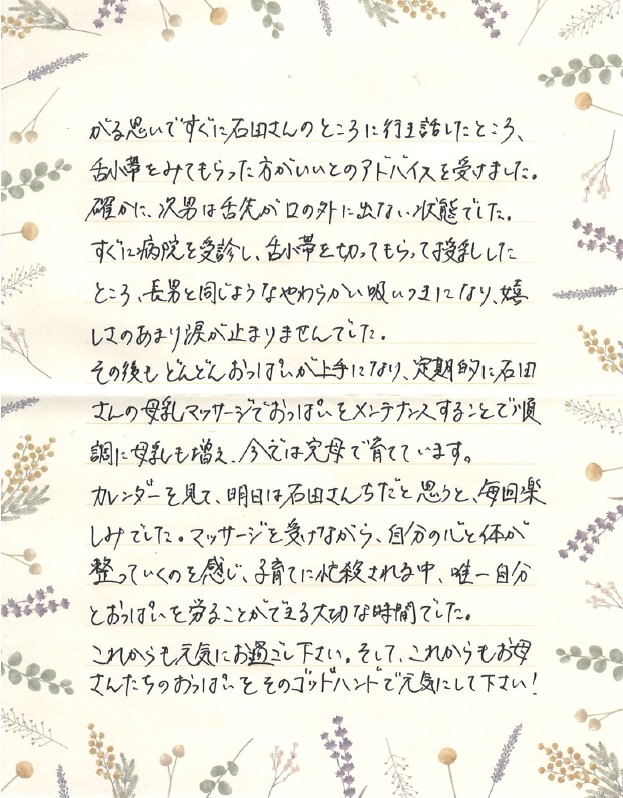 がる思いですぐに石田さんのところに行き話したところ、
舌小帯をみてもらった方がいいとのアドバイスを受けました。
確かに、次男は舌先が口の外に出ない状態でした。
すぐに病院を受診し、舌小帯を切ってもらって授乳した
ところ、長男と同じようなやわらかい吸いつきになり、嬉
しさのあまり涙が止まりませんでした。
その後もどんどんおっぱいが上手になり、定期的に石田
さんの母乳マッサージでおっぱいをメンテナンスすることで順
調に母乳も増え、今では完母で育てています。
カレンダーを見て、明日は石田さんちだと思うと、毎回楽
しみでした。マッサージを受けながら、自分の心と体が
整っていくのを感じ、子育てに忙殺される中、唯一自分
とおっぱいを労ることができる大切な時間でした。
これからも元気にお過ごし下さい。そして、これからもお母
さんたちのおっぱいをそのゴッドハンドで元気にして下さい!